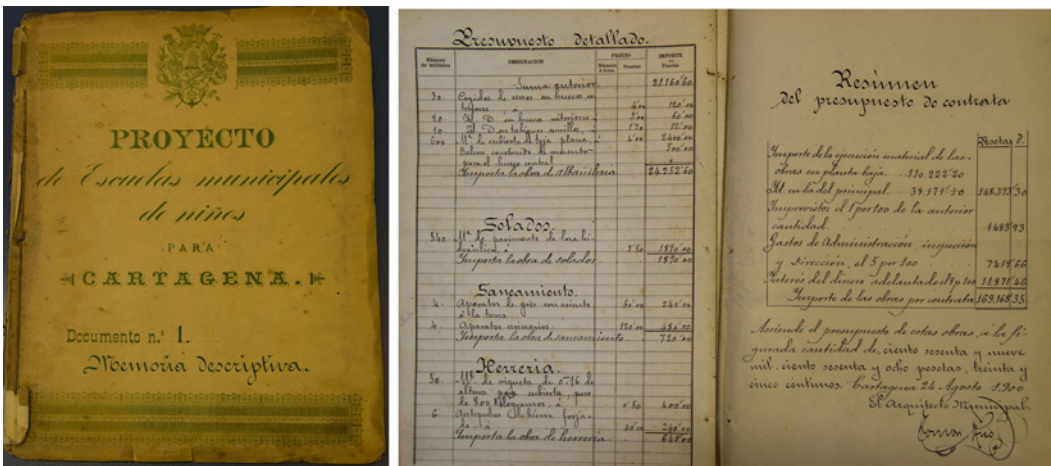 PROYECTO
de Escuelas municipales
de niños
PARA
CARTAGENA.
Documento n.º 1.
Memoria descriptiva.
Presupuesto detallado.
Número de unidades
DESIGNACION
PRECIO
IMPORTE
Pesetas
Suma anterior.
21.160'60
30.
en huecos
4'00
120'00
20.
Id. D. en huecos interiores á
3'00
60'00
10.
Id. D. en tabiques sencillos, á
1'20
12'00
600
M.² de cubierta de teja plana, á
4'00
2400'00
Balcon construido de cemento
para el hueco central
500'00
Importa la obra de albañileria
24.252'60
Solados.
540.
M.² de pavimento de losa hi-
dráulica, á
3'50
1890'00
Importa la obra de solados.
1890'00
Saneamiento.
4.
Aparatos de grés con asiento
á la turca
60'00
240'00
4.
Aparatos urinarios
120'00
480'00
Importa la obra de saneamiento.
720'00
Herreria.
50.
M.ˡ de vigueta de 0'16 de
altura para cubierta, peso
de 800 kilogramos, á
0'50
400'00
6
de hierro forja-
do á
40'00
240'00
Importa la obra de herreria
640'00
Resúmen
del presupuesto de contrata
Pesetas
Importe de la ejecución material de las
obras en planta baja. 110.222'20
Id. en la del principal 38.171'10
148.393'30
Imprevistos el 1 por 100 de la anterior
cantidad
1483'93
Gastos de Administración inspección
y Dirección, el 5 por 100
7419'66
Interés del dinero adelantado el 8 p 100
11.871'46
Importe de las obras por contrata
169.168'35
Asciende el presupuesto de estas obras, á la fi-
gurada cantidad de ciento sesenta y nueve
mil ciento sesenta y ocho pesetas, treinta y
cinco céntimos. Cartagena 24 Agosto 1.900
El Arquitecto Municipal.